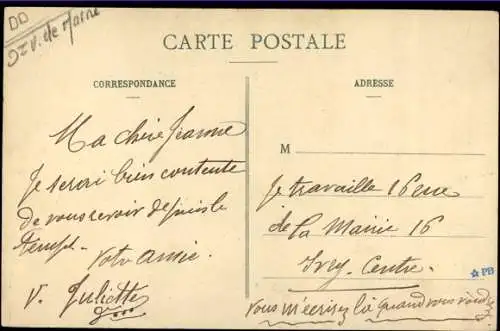 DD
V. de Marne
CARTE POSTALE
CORRESPONDANCE
ADRESSE
Ma chère Jeanne
Je serai bien contente
de vous revoir depuis le
temps.
Votre amie
V. Juliette
M
Je travaille 16 rue
de la Mairie 16
Ivry. Centre.
Vous m'écrirez là quand vous
PB